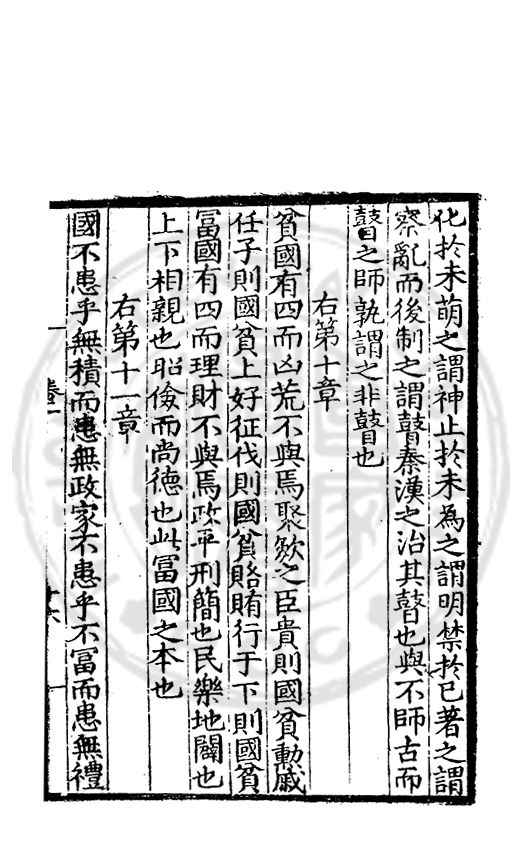 化於未萌之謂神止於未為之謂明禁於已著之謂
察亂而後制之謂瞽秦漢之治其瞽也與不師古而
瞽之師孰謂之非瞽也
右第十章
貧國有四而凶荒不與焉聚斂之臣貴則國貧勳戚
任子則國貧上好征伐則國貧賂賄行于下則國貧
富國有四而理財不與焉政平刑簡也民樂地闢也
上下相親也昭儉而尚德也此富國之本也
右第十一章
國不患乎無積而患無政家不患乎不富而患無禮